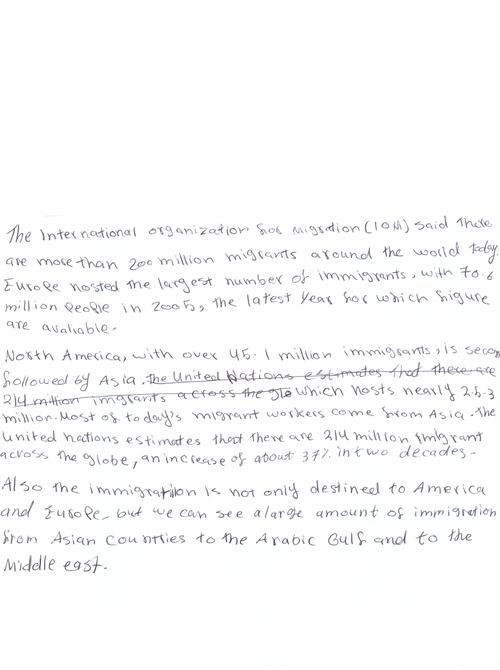 The International organization for Migration (IOM) said There
are more than 200 million migrants around the world today.
Europe hosted the largest number of immigrants, with 70.6
million People in 2005, the latest Year for which figure
are avaliable.
North America, with over 45.1 million immigrants, is secon
followed by Asia. the United Nations estimates that there are
214 million imigrants across the glo which hosts nearly 25.3
million. Most of today's migrant workers come from Asia. The
united nations estimates that there are 214 million imigrant
across the globe, an increase of about 37% in two decades.
Also the immigration is not only destined to America
and Europe, but we can see a large amount of immigretion
from Asian Countries to the Arabic Gulf and to the
Middle east.